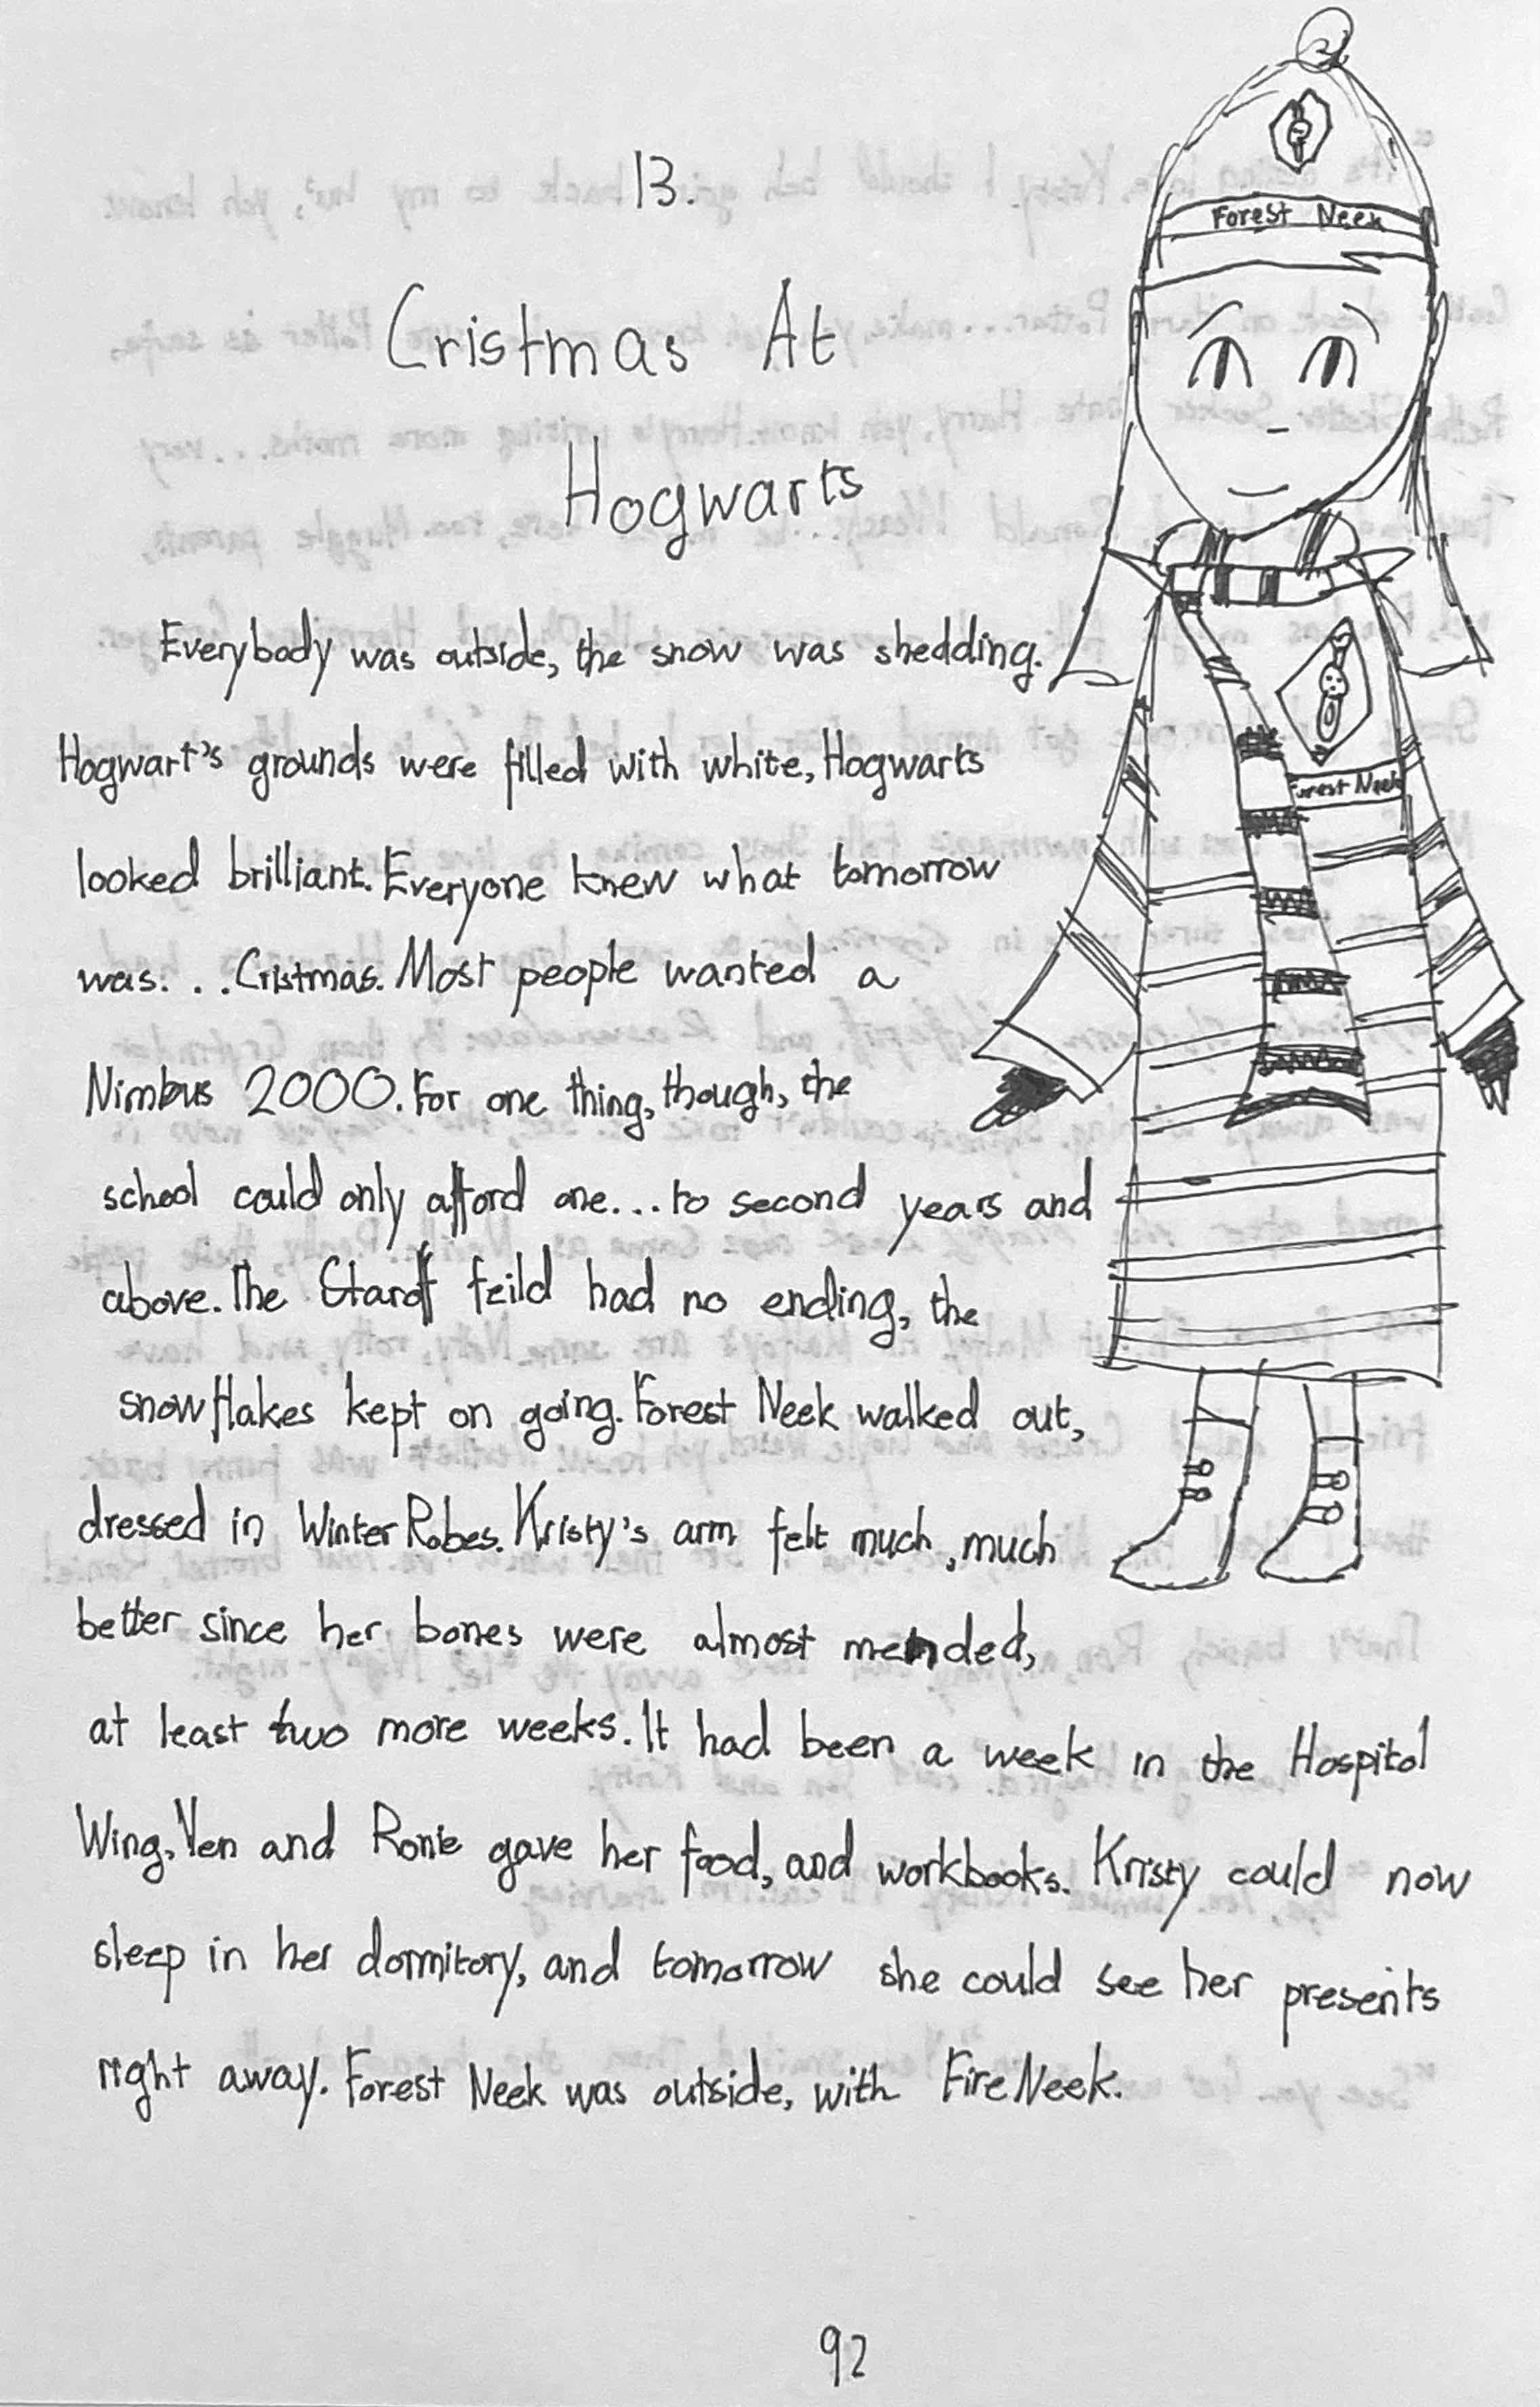 13.
Cristmas At
Hogwarts
Forest Neek
Forest Neek
Everybody was outside, the snow was shedding.
Hogwart's grounds were filled with white, Hogwarts
looked brilliant. Everyone knew what tomorrow
was. . . Cristmas. Most people wanted a
Nimbus 2000. For one thing, though, the
school could only afford one... to second years and
above. The feild had no ending, the
snowflakes kept on going. Forest Neek walked out,
dressed in Winter Robes. Kristy's arm felt much, much
better since her bones were almost mended,
at least two more weeks. It had been a week in the Hospitol
Wing, Ven and Ronie gave her food, and workbooks. Kristy could now
sleep in her dormitory, and tomorrow she could see her presents
right away. Forest Neek was outside, with Fire Neek.
92